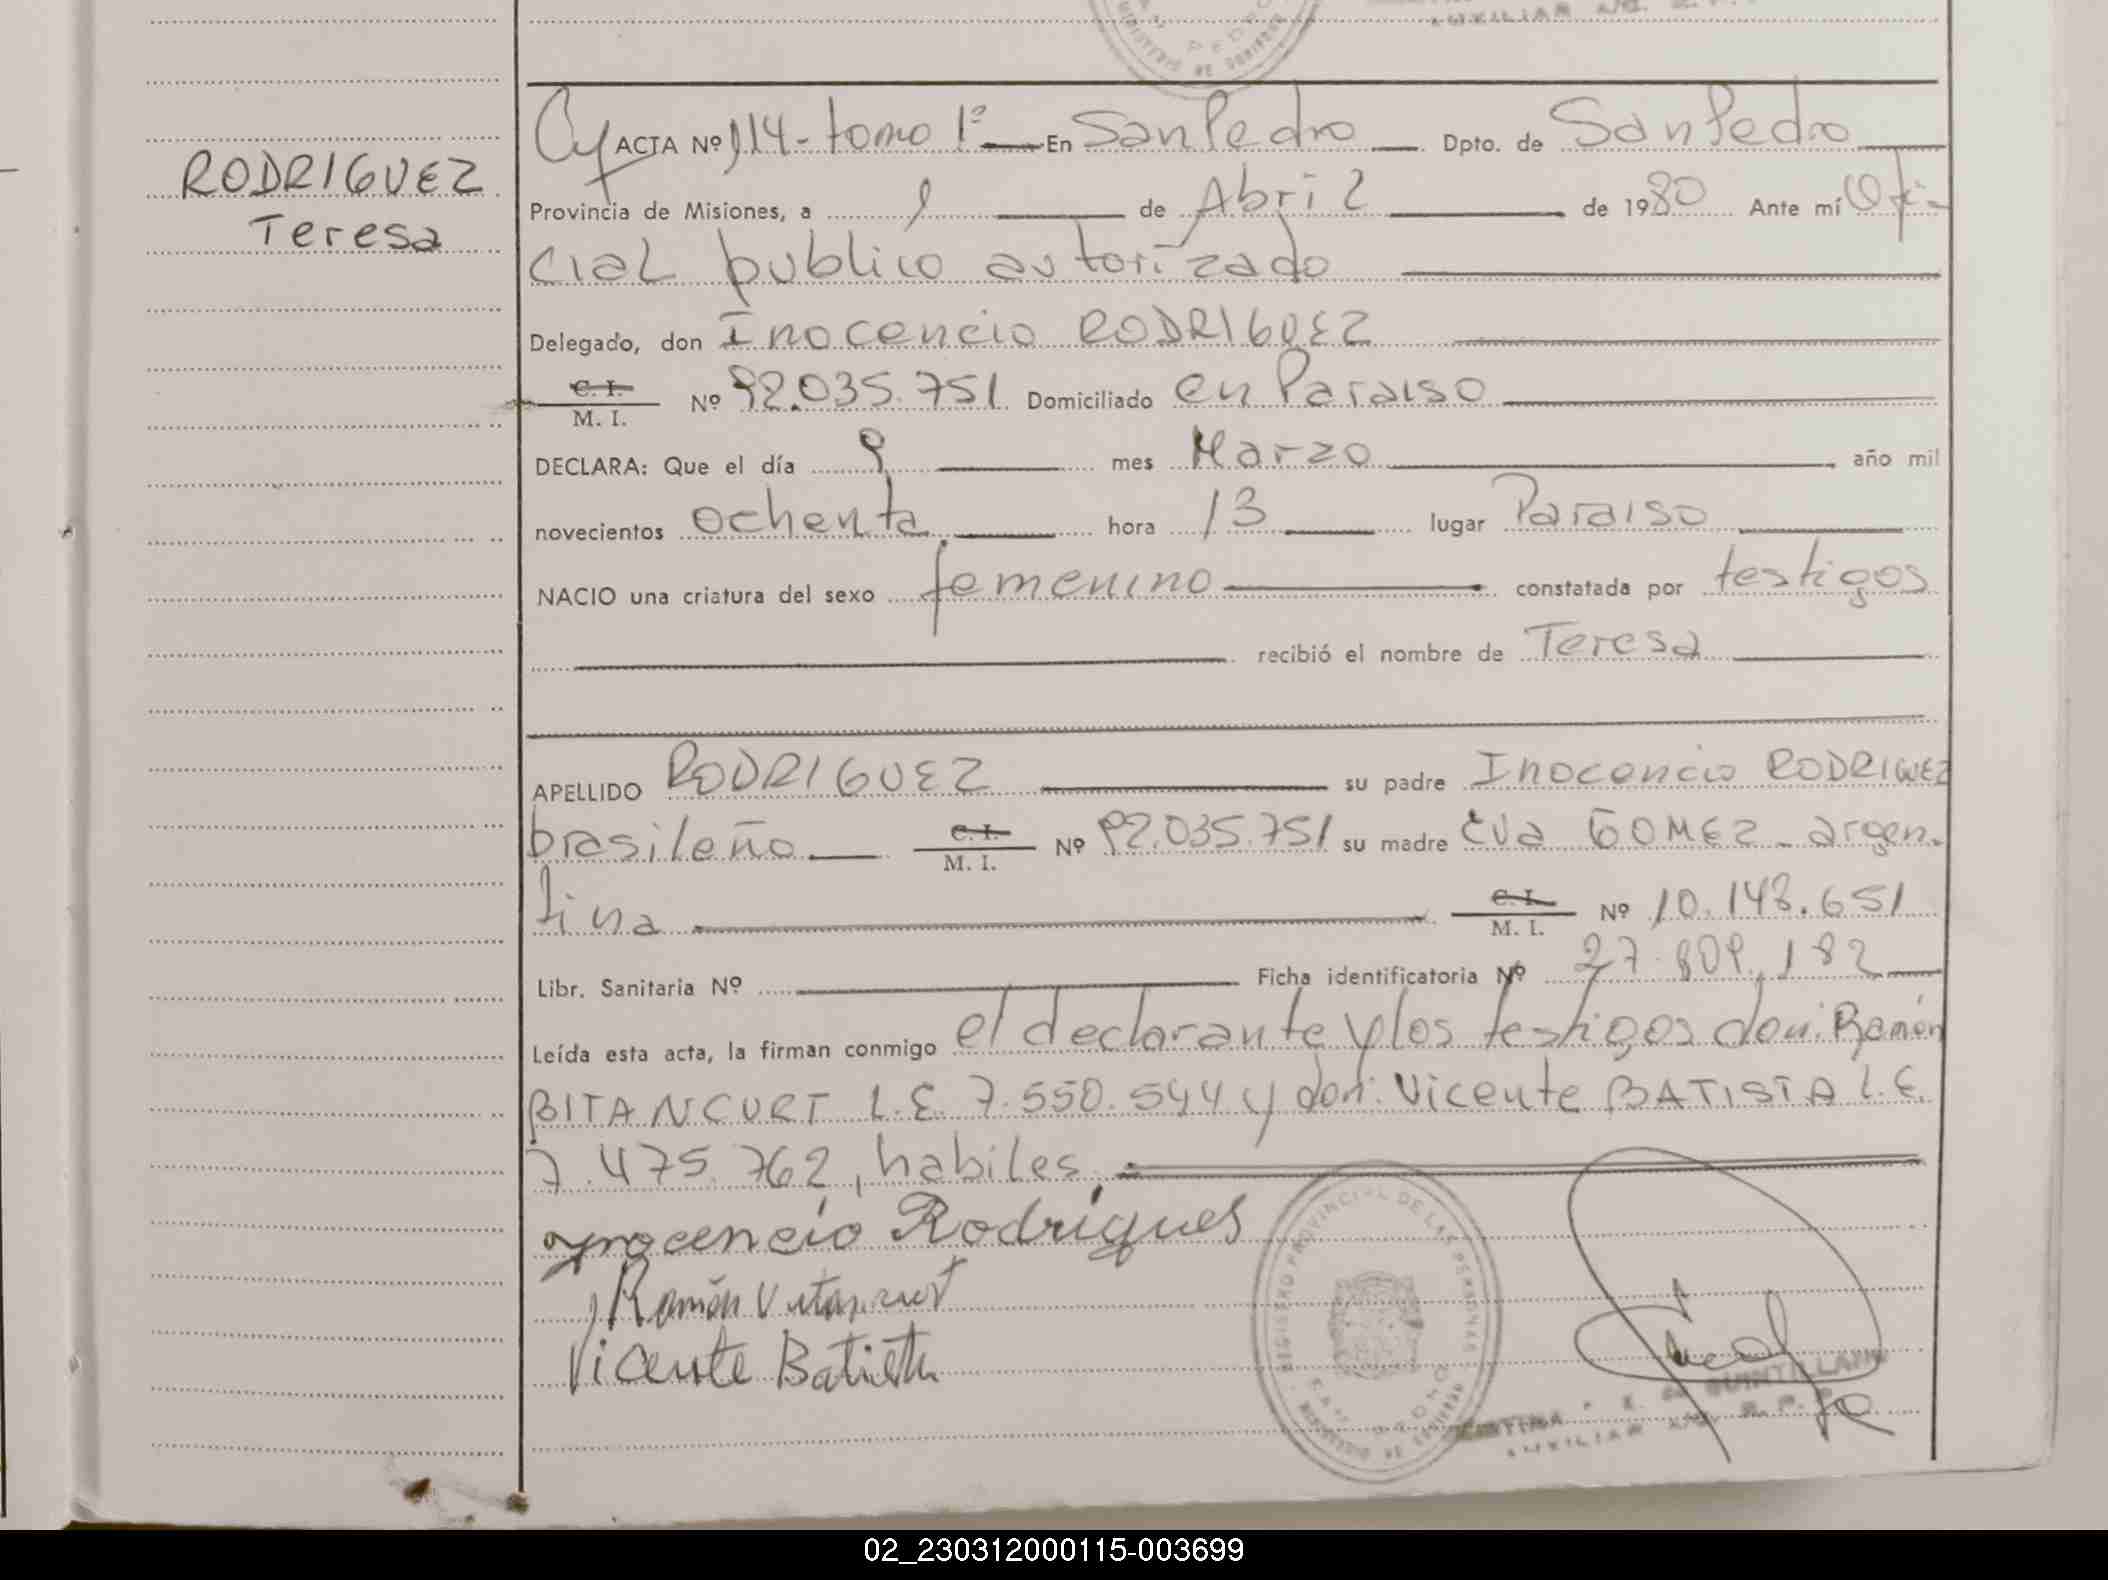 RODRIGUEZ
Teresa
ACTA Nº 114- tomo 1º En San Pedro Dpto. de San Pedro
Provincia de Misiones, a de Abril de 1980 Ante mí Ofi-
cial publico autorizado
Delegado, don Inocencio RODRIGUEZ
C. I.
M. I. Nº 92.035.751 Domiciliado en Paraiso
DECLARA: Que el día 9 mes Marzo año mil
novecientos ochenta hora 13 lugar Paraiso
NACIO una criatura del sexo femenino constatada por testigos
recibió el nombre de Teresa
APELLIDO RODRIGUEZ su padre Inocencio RODRIGUEZ
brasileño C. I. M. I. Nº 92.035.751 su madre Eva GOMEZ - argen-
tina C. I. M. I. Nº 10.148.651
Libr. Sanitaria Nº Ficha identificatoria Nº 27.809.182
Leída esta acta, la firman conmigo el declarante y los testigos don: Ramón
BITANCURT L.E. 7.550.544 y don: Vicente BATISTA L.E.
7.475.762, habiles
Inocencio Rodrigues
Ramón
Vicente Batista
REGISTRO PROVINCIAL DE LAS PERSONAS
SAN PEDRO
MINISTERIO DE GOBIERNO
QUINTILLAN
AUXILIAR
02_230312000115-003699